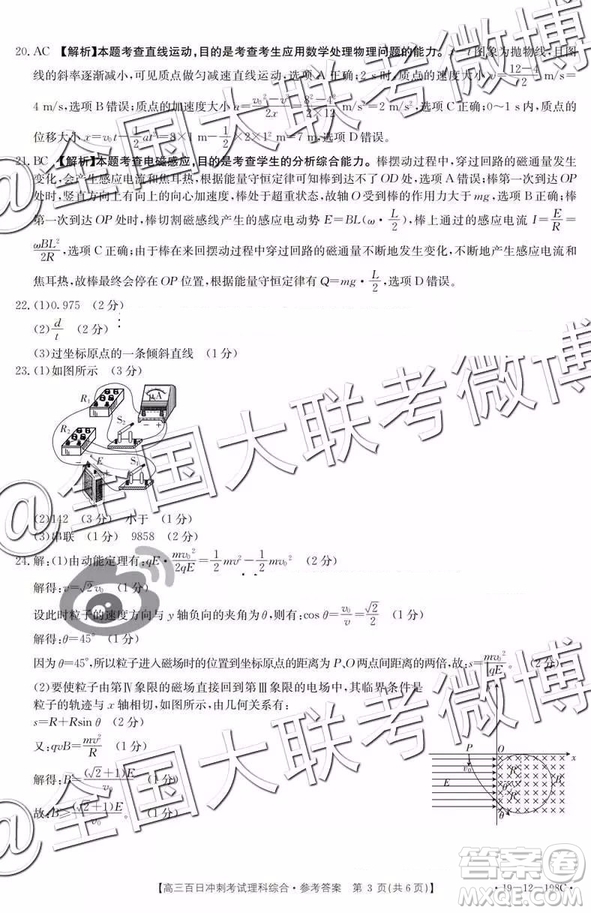 20. AC 【解析】本题考查直线运动，目的是考查考生应用数学处理物理问题的能力。x-t图象为抛物线，且图
线的斜率逐渐减小，可见质点做匀减速直线运动，选项A正确；2 s时，质点的速度大小v=(12-4)/2 m/s=
4 m/s，选项B错误；质点的加速度大小a=(v₀²-v²)/2x=(8²-4²)/(2×12)
位移大小x=v₀t-1/2at²=8×1 m-1/2×2×1² m=7 m，选项D错误。
21. BC 【解析】本题考查电磁感应，目的是考查学生的分析综合能力。棒摆动过程中，穿过回路的磁通量发生
变化，会产生感应电流和焦耳热，根据能量守恒定律可知棒到达不了OD处，选项A错误；棒第一次到达OP
处时具有方向水平向右、大小为
第一次到达OP处时，棒切割磁感线产生的感应电动势E=BL(ω·L/2)，棒上通过的感应电流I=E/R=
ωBL²/2R，选项C正确；由于棒在来回摆动过程中穿过回路的磁通量不断地发生变化，不断地产生感应电流和
焦耳热，故棒最终会静止在OP位置，根据能量守恒定律有Q=mg·L/2，选项D错误。
22. (1)0.975 (2分)
(2)d/t (2分)
(3)过坐标原点的一条倾斜直线 (1分)
23. (1)如图所示 (3分)
R₁
μA
S₂
R₂
E
S₁
(2)142 (3分) 小于 (1分)
(3)串联 (1分) 9858 (2分)
24. 解：(1)由动能定理有：qE·mv₀²/2qE=1/2mv²-1/2mv₀² (2分)
解得：v=√2v₀ (1分)
设此时粒子的速度方向与y轴负向的夹角为θ，则有：cos θ=v₀/v=√2/2 (1分)
解得：θ=45° (1分)
因为θ=45°，所以粒子进入磁场时的位置到坐标原点的距离为P、O两点距离的两倍，故：s=mv₀²/qE。 (1分)
(2)要使粒子由第Ⅳ象限的磁场到达第Ⅲ象限的电场中，其临界条件是
粒子的轨迹与x轴相切，如图所示，由几何关系有：
s=R+Rsin θ (2分)
又：qvB=mv²/R (1分)
解得：B=(√2+1)E/v₀ (1分)
故B≥(√2+1)E/v₀。 (2分)
P
O
x
v₀
E
R
θ
【高三百日冲刺考试理科综合·参考答案 第3页(共6页)】
·19-12-198C·
@全国大联考微博
@全国大联考微博